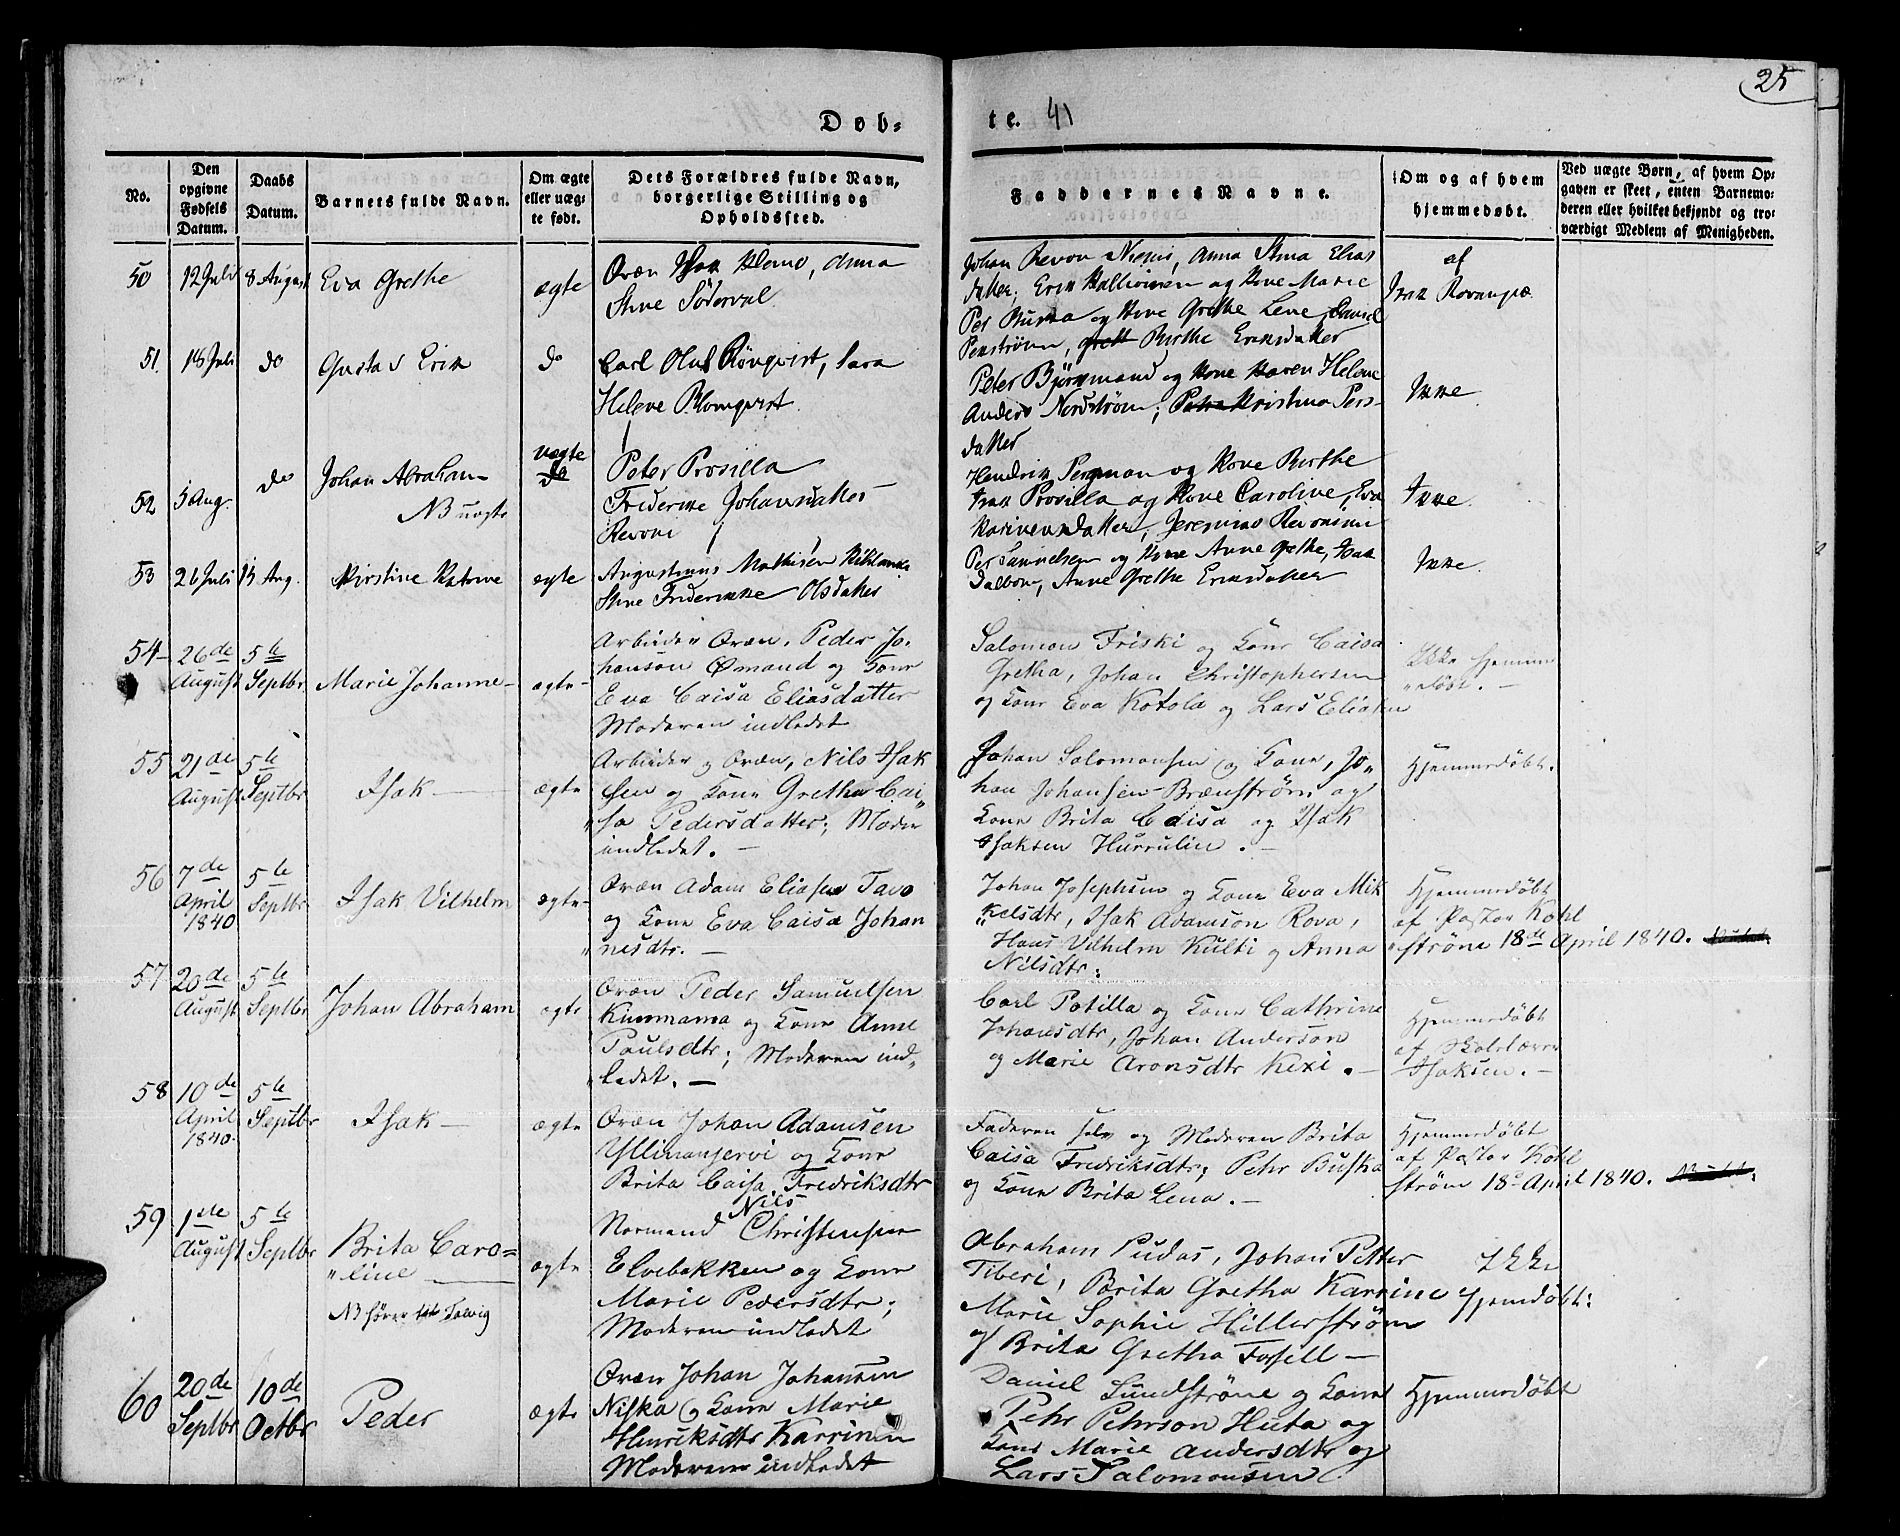 25
Døb-
te. 41
No.
Den
opgivne
Fødsels
Datum.
Daabs
Datum.
Barnets fulde Navn.
Om ægte
eller uæg-
te født.
Dets Forældres fulde Navn,
borgerlige Stilling og
Opholdssted.
Faddernes Navne.
Om og af hvem
hjemmedøbt.
Ved uægte Børn, af hvem Op-
gaven er skeet, enten Barnemo-
deren eller hvilket bekjendt og tro-
værdigt Medlem af Menigheden.
50
12 Juli
8 August
Eva Grethe
ægte
Qvæn Isak Niemo, Anna
Stine Søderval.
Johan Revon Niemi, Anna Stina Elias
datter, Erik Kallioinen og Kone Marie
Per Buska og Kone Grethe Lene, Daniel
Penström, Birthe Eriksdatter
af
Isak Rovanpæ
51.
18 Juli
do
Gustav Erik
do
Carl Oluf Rönqvist, Sara
Helene Blomqvist.
Peter Björnmand og Kone Karen Helene
Anders Nordstrøm; Kristina Pers-
datter
Ikke
52
5 Aug.
do
Johan Abraham
NB uægte
uægte
do
Peter Prosilla
Friderike Johansdatter
Revoni
Hendrik Pergman og Kone Birthe
Isak Prosilla og Kone Caroline, Eva
datter, Jeremias Revonsini
Ikke.
53
26 Juli
15 Aug.
Kirstine Katrine
ægte
Augustinus Mathisen
Stine Friderikke Olsdatter
Per Samuelsen og Kone Anne Grethe, Isak
Dalbom, Anne Grethe Eriksdatter
Ikke.
54
26de
August
5te
Septbr
Marie Johanne
ægte
Arbeider Qvæn, Peder Jo-
hanson Ømand og Kone
Eva Caisa Eliasdatter
Moderen indledet
Salomon Friski og Kone Caisa
Gretha, Johan Christophersen
og Kone Eva Kotola og Lars Eliasen
Ikke hjemme
døbt.
55
21de
August
5te
Septbr
Isak
ægte
Arbeider og Qvæn, Nils Isak
sen og Kone Gretha Cai„
„sa Pedersdatter; Moder
indledet.
Johan Salomonsen og Kone, Jo„
han Johansen Brænström og
Kone Brita Caisa og Isak
Isaksen Hurrulin.
Hjemmedøbt.
56
7de
April
1840
5te
Septbr
Isak Vilhelm
ægte
Qvæn Adam Eliasen Tavo
og Kone Eva Caisa Johan
„nesdtr.
Johan Josephsen og Kone Eva Mik
„kelsdtr, Isak Adamson Rova,
Hans Vilhelm Kulti og Anna
Nilsdtr:
Hjemmedøbt
af Pastor Kohl
„strøm 18de April 1840.
57
20de
August
5te
Septbr
Johan Abraham
ægte
Qvæn Peder Samuelsen
Kinnmama og Kone Anne
Paulsdtr; Moderen ind„
„ledet.
Carl Potilla og Kone Cathrine
Johansdtr, Johan Anderson
og Marie Aronsdtr Kexi.
Hjemmedøbt
af Skolelærer
Isaksen.
58
10de
April
1840.
5te
Septbr
Isak
ægte
Qvæn Johan Adamsen
Yllinanjervi og Kone
Brita Caisa Fredriksdtr
Faderen selv og Moderen Brita
Caisa Fredriksdtr; Pehr Buska
og Kone Brita Lena.
Hjemmedøbt
af Pastor Kohl
strøm 18de April 1840.
59
1ste
August
5te
Septbr
Brita Caro=
„line
NB hører til Talvig
ægte
Nils
Normand Christensen
Elvebakken og Kone
Marie Pedersdtr;
Moderen indledet
Abraham Pudas, Johan Petter
Tiberi, Brita Gretha Karrine
Marie Sophie Hillerström
og Brita Gretha Forsell
Ikke
Hjemdøbt:
60
20de
Septbr
10de
Octbr
Peder
ægte
Qvæn Johan Johansen
Niska og Kone Marie
Henriksdtr Karrinen
Moderen indledet
Daniel Sundström og Kone
Pehr Pehrson Huta og
Kone Marie Andersdtr og
Lars Salomonsen
Hjemmedøbt